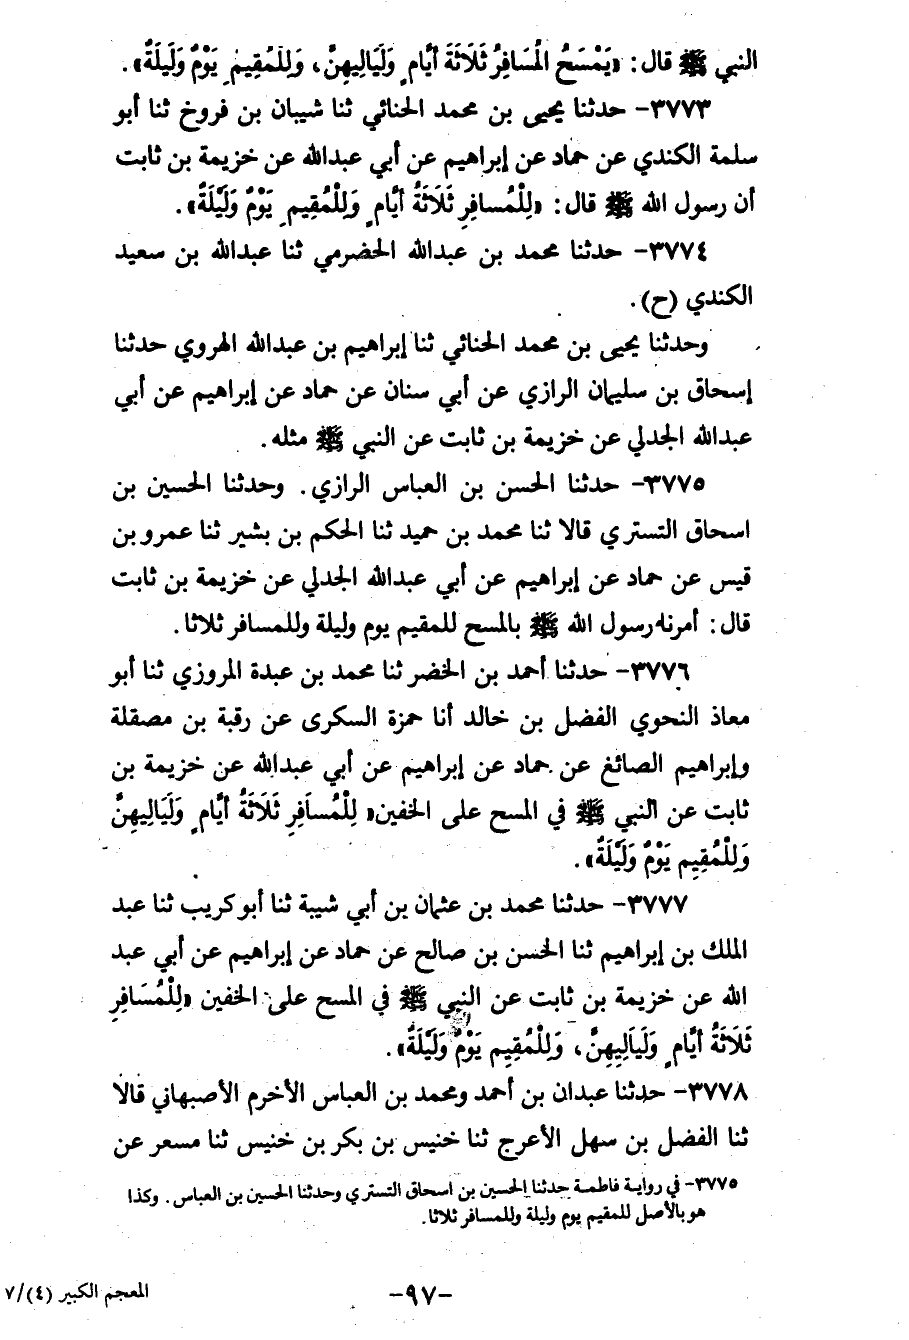 النبي ﷺ قال: «يَمْسَحُ الْمُسَافِرُ ثَلَاثَةَ أيَّامٍ وَلَيَالِيهِنَّ، وَلِلْمُقِيمِ يَوْمٌ وَلَيْلَةٌ».
٣٧٧٣- حدثنا يحيى بن محمد الحنائي ثنا شيبان بن فروخ ثنا أبو
سلمة الكندي عن حماد عن إبراهيم عن أبي عبدالله عن خزيمة بن ثابت
أن رسول الله ﷺ قال: «لِلْمُسافِرِ ثَلَاثَةُ أيَّامٍ وَلِلْمُقِيمِ يَوْمٌ وَلَيْلَةٌ».
٣٧٧٤- حدثنا محمد بن عبدالله الحضرمي ثنا عبدالله بن سعيد
الكندي (ح).
وحدثنا يحيى بن محمد الحنائي ثنا إبراهيم بن عبدالله الهروي حدثنا
إسحاق بن سليمان الرازي عن أبي سنان عن حماد عن إبراهيم عن أبي
عبدالله الجدلي عن خزيمة بن ثابت عن النبي ﷺ مثله.
٣٧٧٥- حدثنا الحسن بن العباس الرازي. وحدثنا الحسين بن
اسحاق التستري قالا ثنا محمد بن حميد ثنا الحكم بن بشير ثنا عمرو بن
قيس عن حماد عن إبراهيم عن أبي عبدالله الجدلي عن خزيمة بن ثابت
قال: أمرنا رسول الله ﷺ بالمسح للمقيم يوم وليلة وللمسافر ثلاثا.
٣٧٧٦- حدثنا أحمد بن الخضر ثنا محمد بن عبدة المروزي ثنا أبو
معاذ النحوي الفضل بن خالد أنا حمزة السكرى عن رقبة بن مصقلة
وإبراهيم الصائغ عن حماد عن إبراهيم عن أبي عبدالله عن خزيمة بن
ثابت عن النبي ﷺ في المسح على الخفين« لِلْمُسَافِرِ ثَلَاثَةُ أيَّامٍ وَلَيَالِيهِنَّ
وَلِلْمُقِيمِ يَوْمٌ وَلَيْلَةٌ».
٣٧٧٧- حدثنا محمد بن عثمان بن أبي شيبة ثنا أبو كريب ثنا عبد
الملك بن إبراهيم ثنا الحسن بن صالح عن حماد عن إبراهيم عن أبي عبد
الله عن خزيمة بن ثابت عن النبي ﷺ في المسح على الخفين «لِلْمُسَافِرِ
ثَلَاثَةُ أيَّامٍ وَلَيَالِيهِنَّ، وَلِلْمُقِيمِ يَوْمٌ وَلَيْلَةٌ».
٣٧٧٨- حدثنا عبدان بن أحمد ومحمد بن العباس الأخرم الأصبهاني قالا
ثنا الفضل بن سهل الأعرج ثنا خنيس بن بكر بن خنيس ثنا مسعر عن
٣٧٧٥- في رواية فاطمة حدثنا الحسين بن اسحاق التستري وحدثنا الحسين بن العباس. وكذا
هو بالأصل للمقيم يوم وليلة وللمسافر ثلاثا.
-٩٧-
المعجم الكبير (٤)/٧